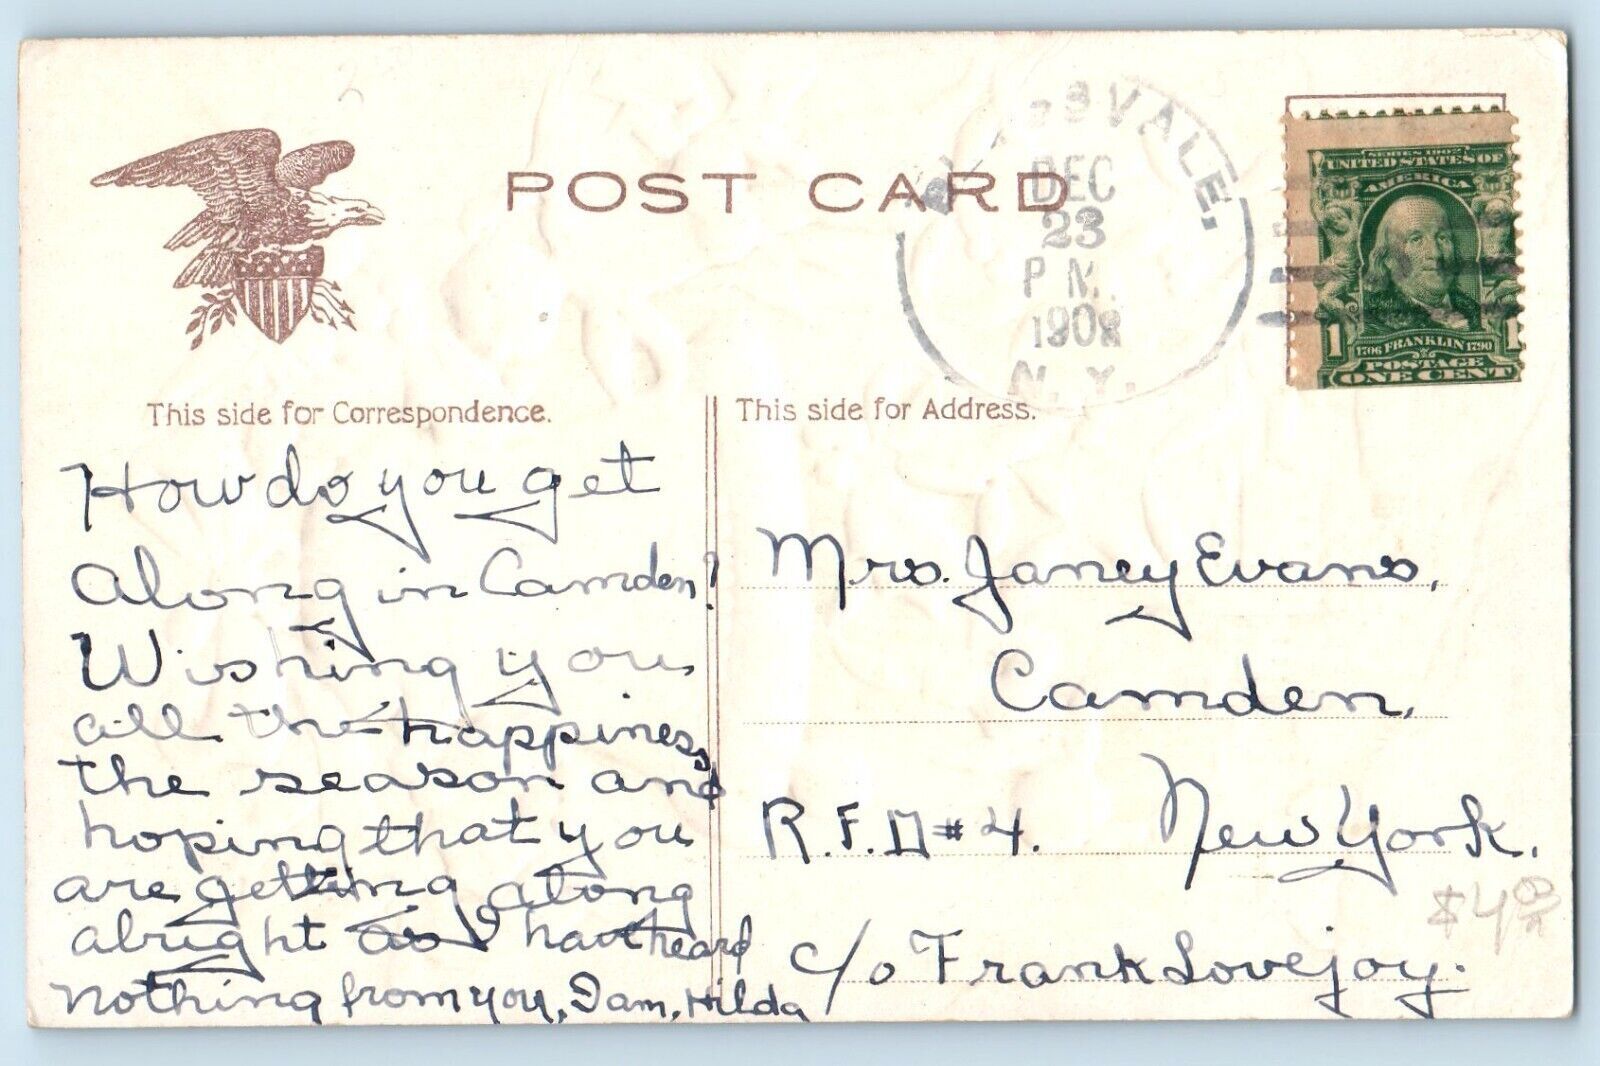 POST CARD
VALE,
DEC
23
P M.
1908
N. Y.
SERIES 1902
UNITED STATES OF
AMERICA
1
1706 FRANKLIN 1790
POSTAGE
ONE CENT
This side for Correspondence.
This side for Address.
How do you get
along in Camden?
Wishing you
all the happiness
the season and
hoping that you
are getting along
alright as I have heard
nothing from you, I am, Hilda
Mrs. Janey Evans,
Camden,
R.F.D #4. New York.
c/o Frank Lovejoy.